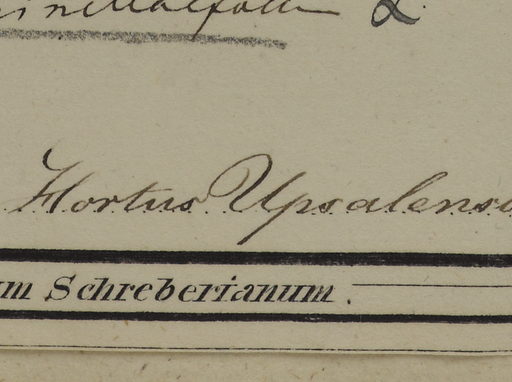 L.
Hortus Upsalens
m Schreberianum.